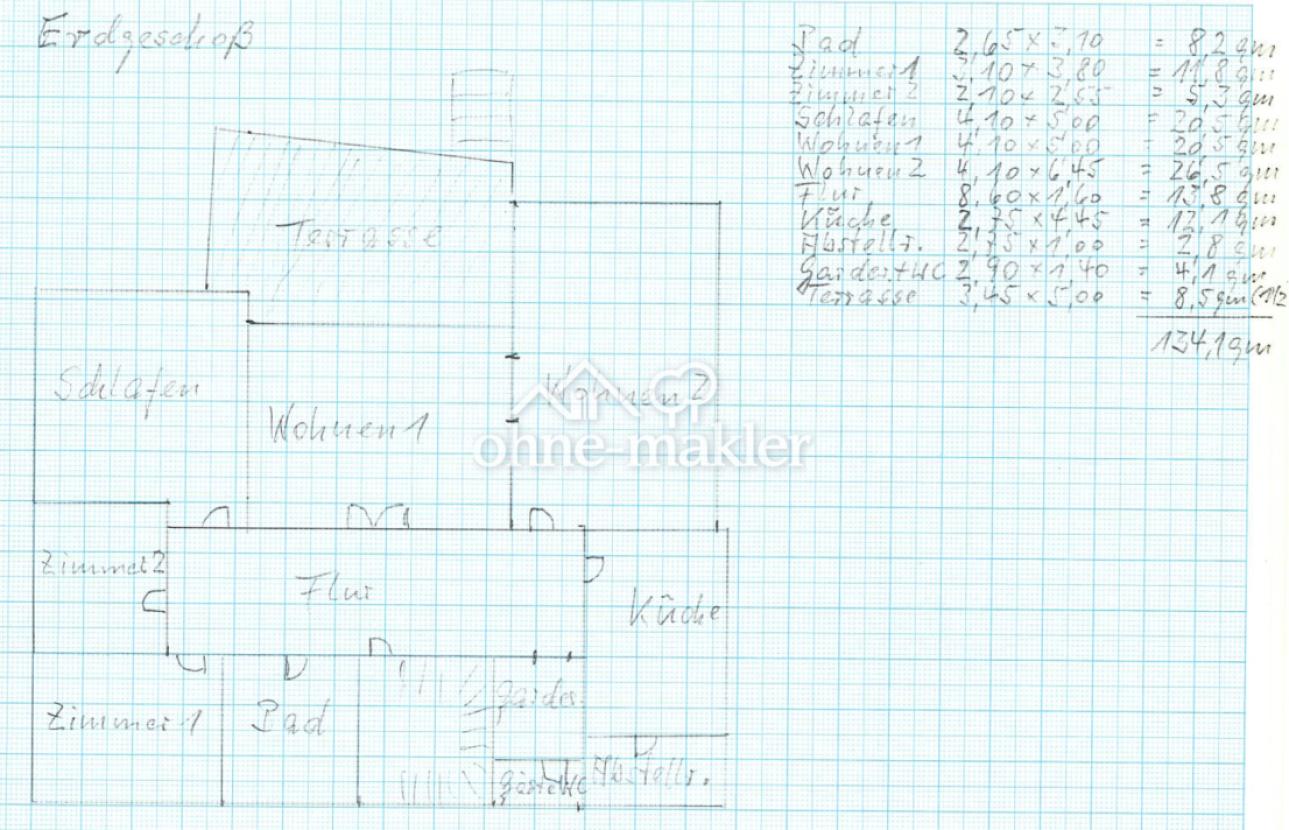 Erdgeschoß
Bad 2,65 x 3,10 = 8,2 qm
Zimmer 1 3,10 x 3,80 = 11,8 qm
Zimmer 2 2,10 x 2,55 = 5,3 qm
Schlafen 4,10 x 5,00 = 20,5 qm
Wohnen 1 4,10 x 5,00 = 20,5 qm
Wohnen 2 4,10 x 6,45 = 26,5 qm
Flur 8,60 x 1,60 = 13,8 qm
Küche 2,75 x 4,45 = 12,1 qm
Abstellr. 2,75 x 1,00 = 2,8 qm
Garder.+WC 2,90 x 1,40 = 4,1 qm
Terrasse 3,45 x 5,00 = 8,5 qm (1/2
134,1 qm
Terrasse
Schlafen
Wohnen 1
Wohnen 2
ohne-makler
Zimmer 2
Flur
Küche
Zimmer 1
Bad
Garder.
Gäste WC
Abstellr.